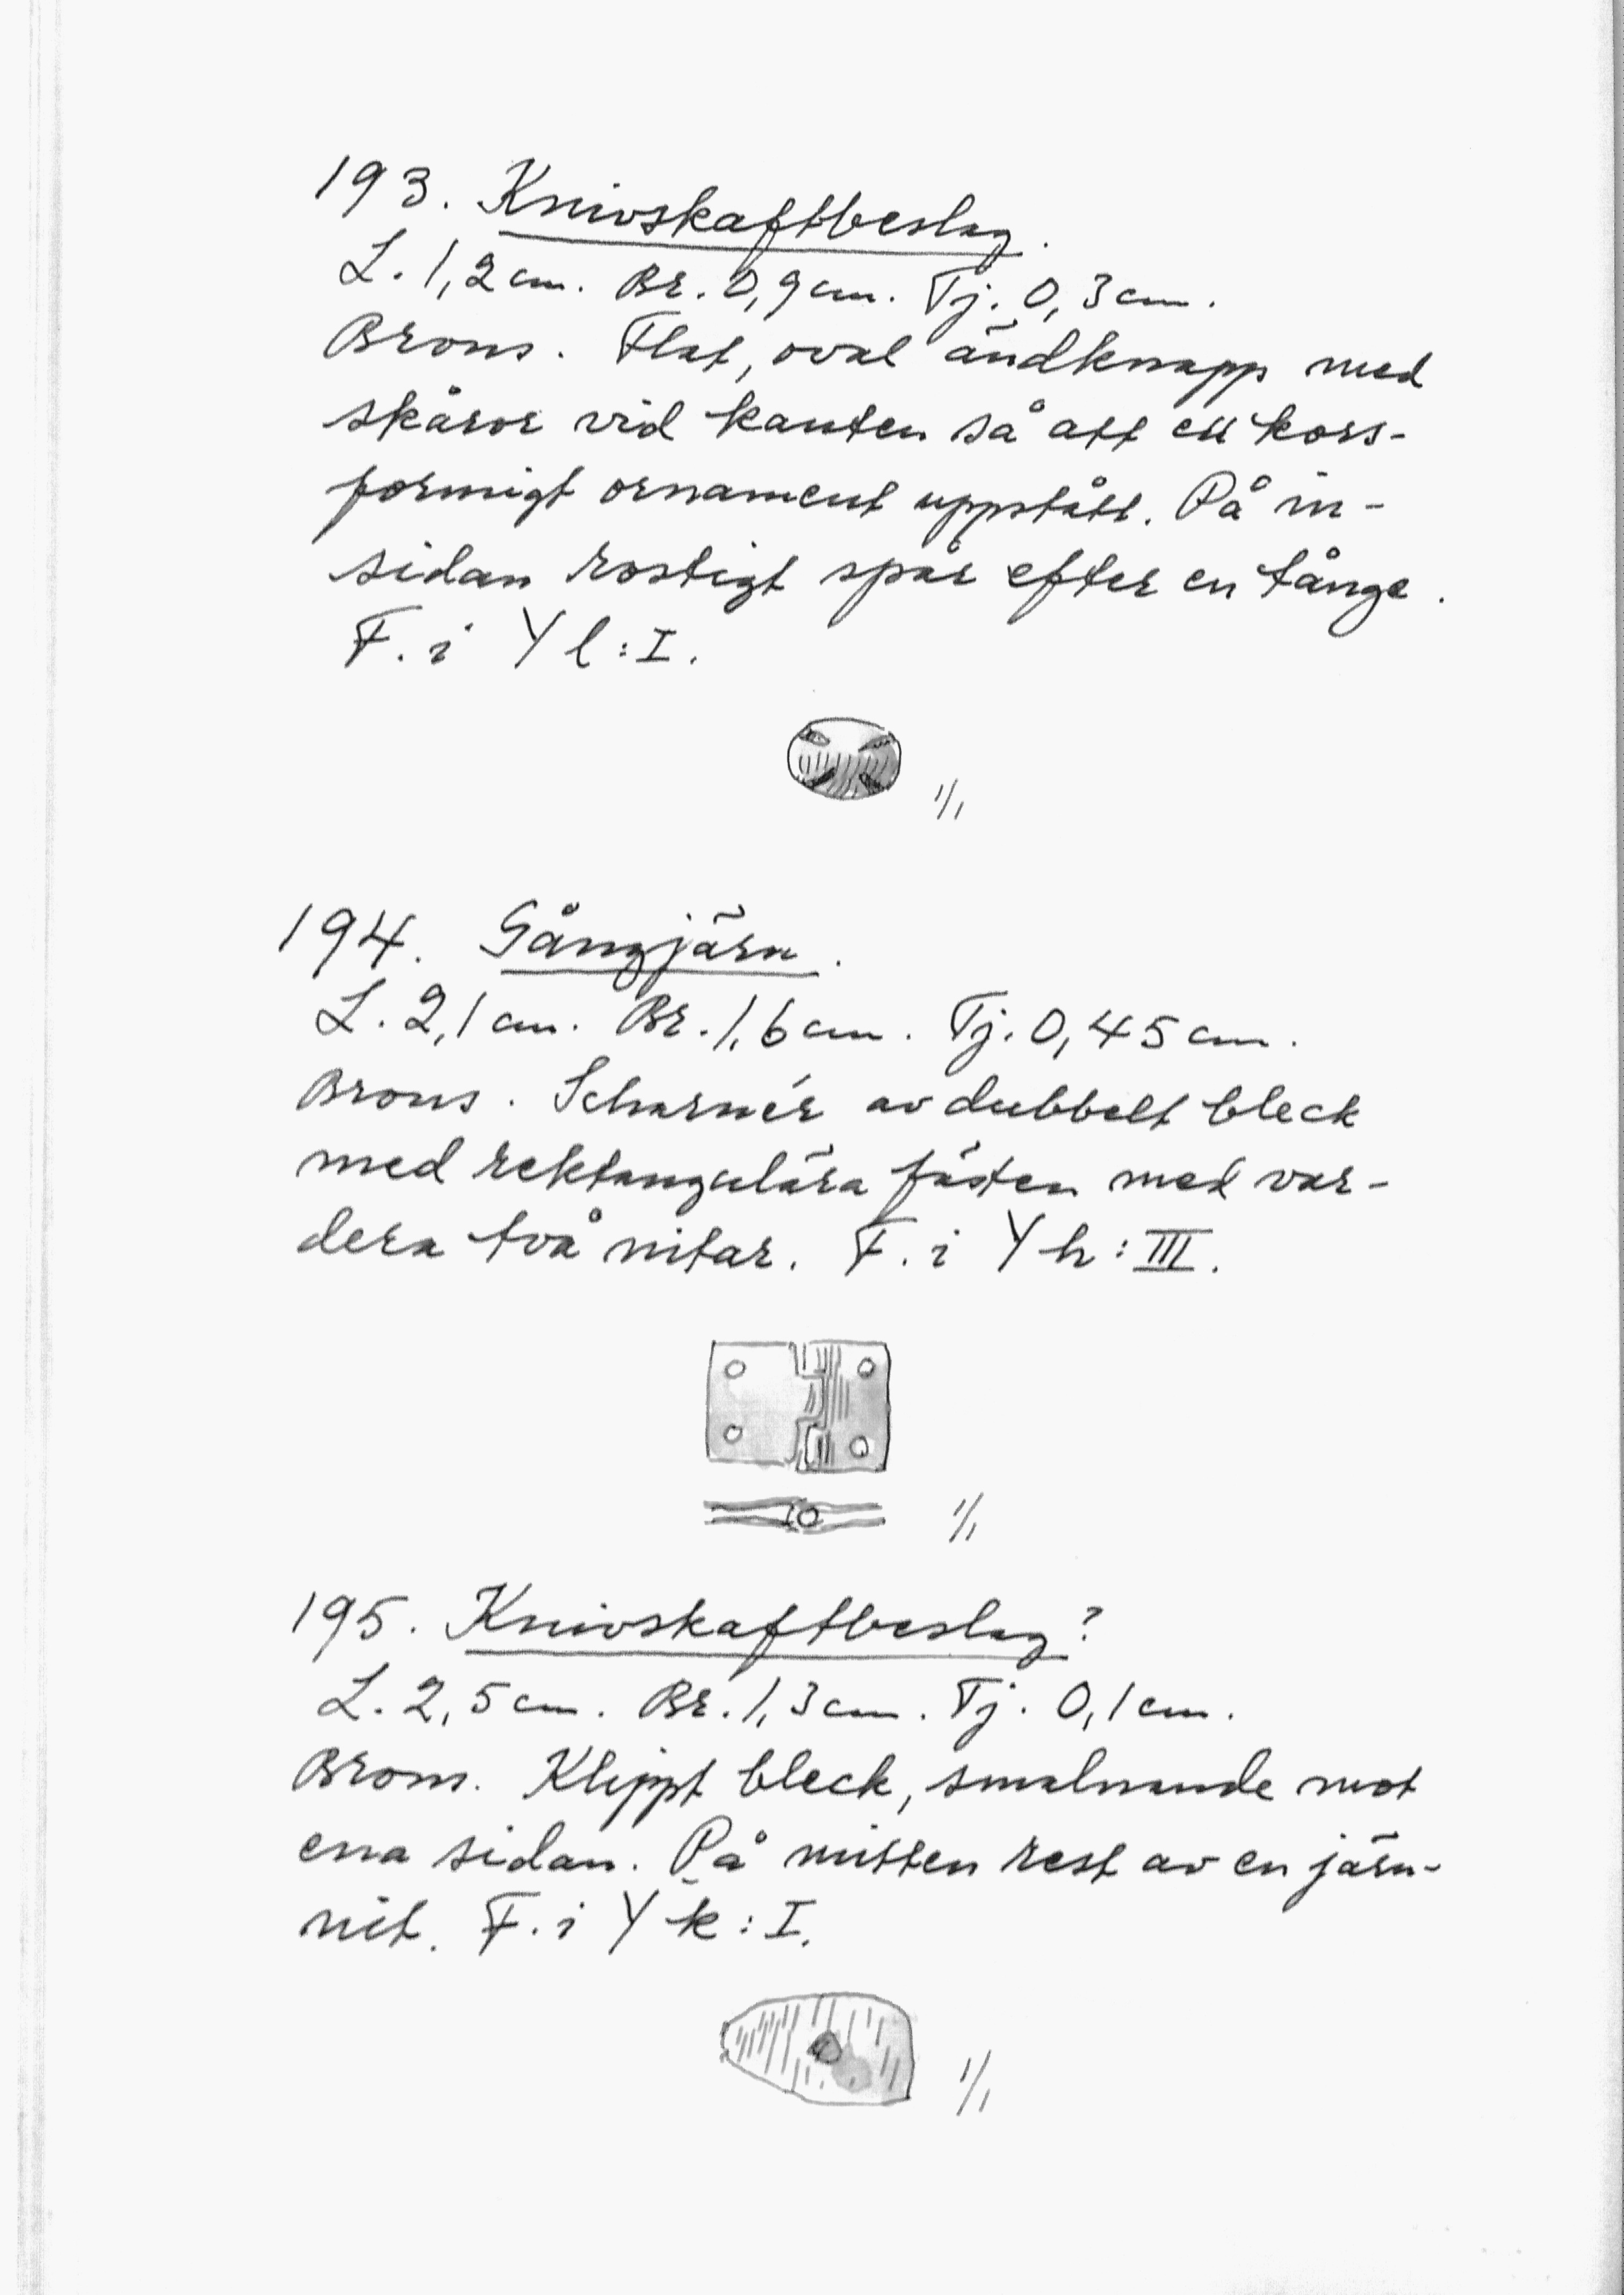 193. Knivskaftbeslag.
L. 1,2 cm. Br. 0,9 cm. Tj. 0,3 cm.
Brons. Flat, oval ändknapp med
skåror vid kanten så att ett kors-
formigt ornament uppstått. På in-
sidan rostigt spår efter en tånge.
F. i Y l : I.
1/1
194. Gångjärn.
L. 2,1 cm. Br. 1,6 cm. Tj. 0,45 cm.
Brons. Scharnér av dubbelt bleck
med rektangulära fästen med var-
dera två nitar. F. i Y h : III.
1/1
195. Knivskaftbeslag?
L. 2,5 cm. Br. 1,3 cm. Tj. 0,1 cm.
Brons. Klippt bleck, smalnande mot
ena sidan. På mitten rest av en järn-
nit. F. i Y k : I.
1/1